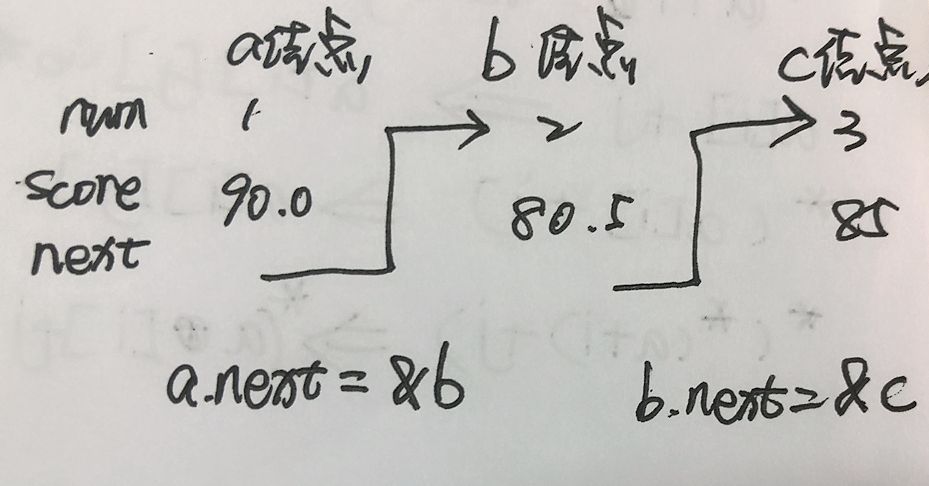 a结点 b结点 c结点
num 1 2 3
score 90.0 80.5 85
next
a.next=&b b.next=&c